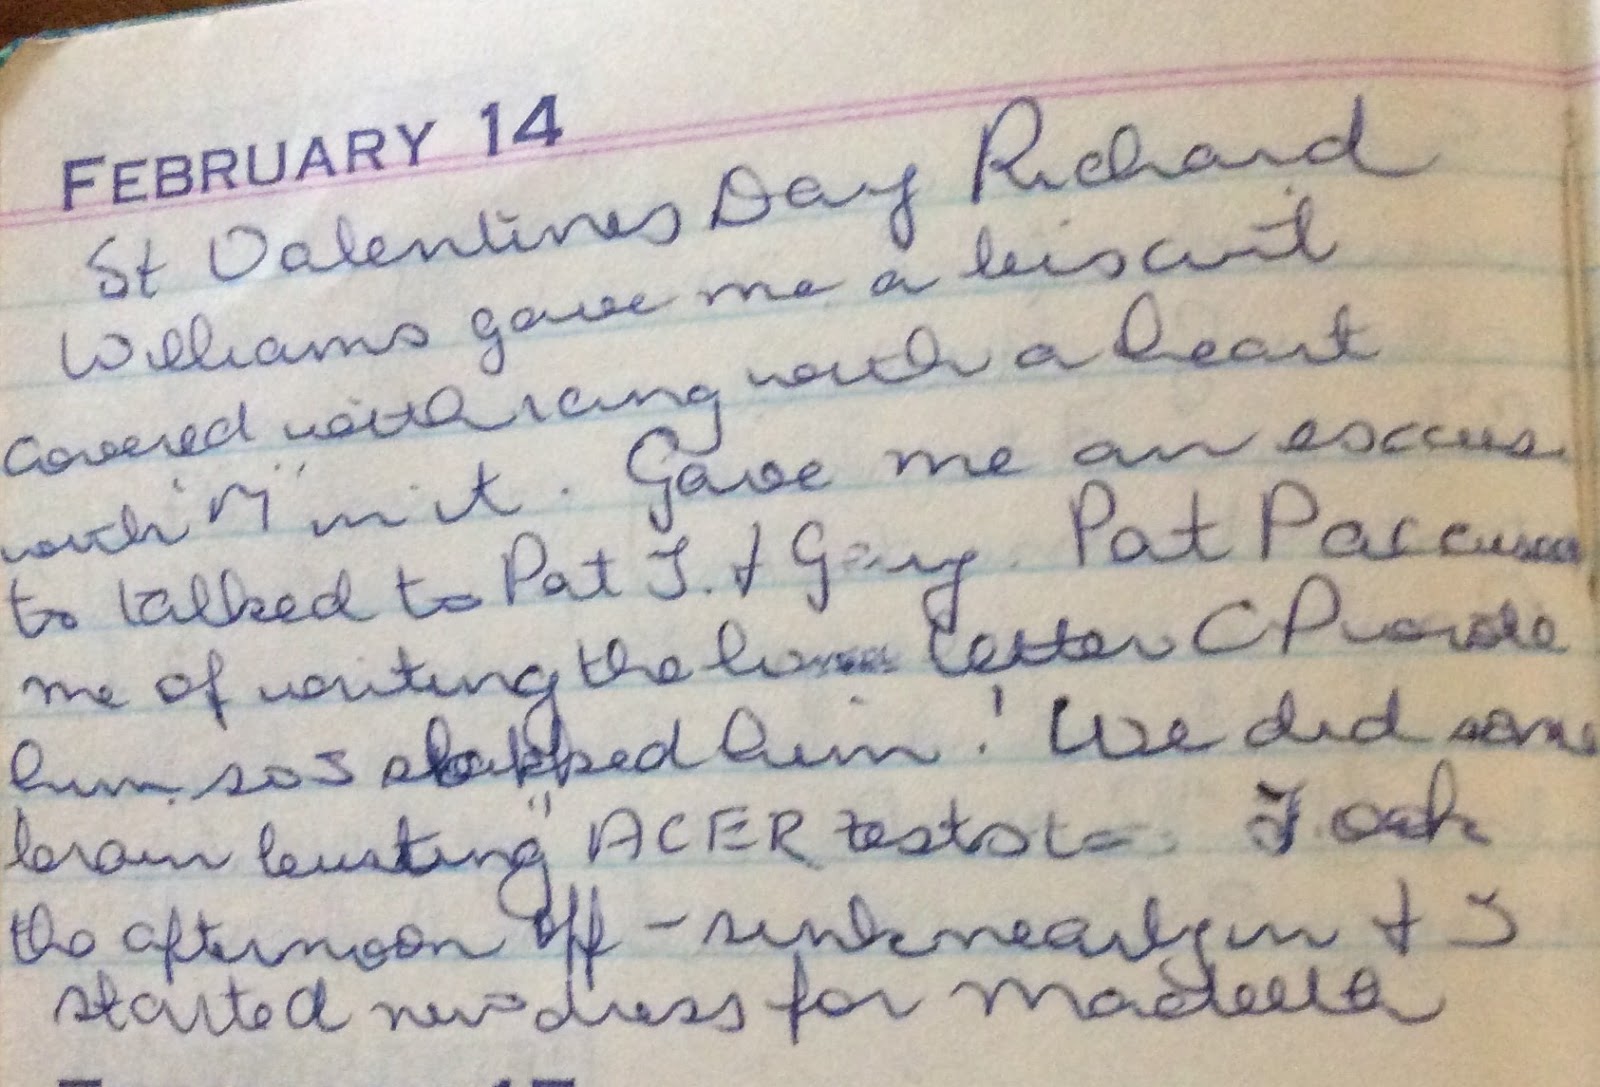 FEBRUARY 14
St Valentines Day Richard
Williams gave me a biscuit
covered with icing with a heart
with "M" in it. Gave me an excuse
to talked to Pat J. & Gary. Pat Par
me of writing the letter C P wrote
him so I slapped him! We did some
brain busting" ACER tests Took
the afternoon off - sink nearly in & I
started new dress for